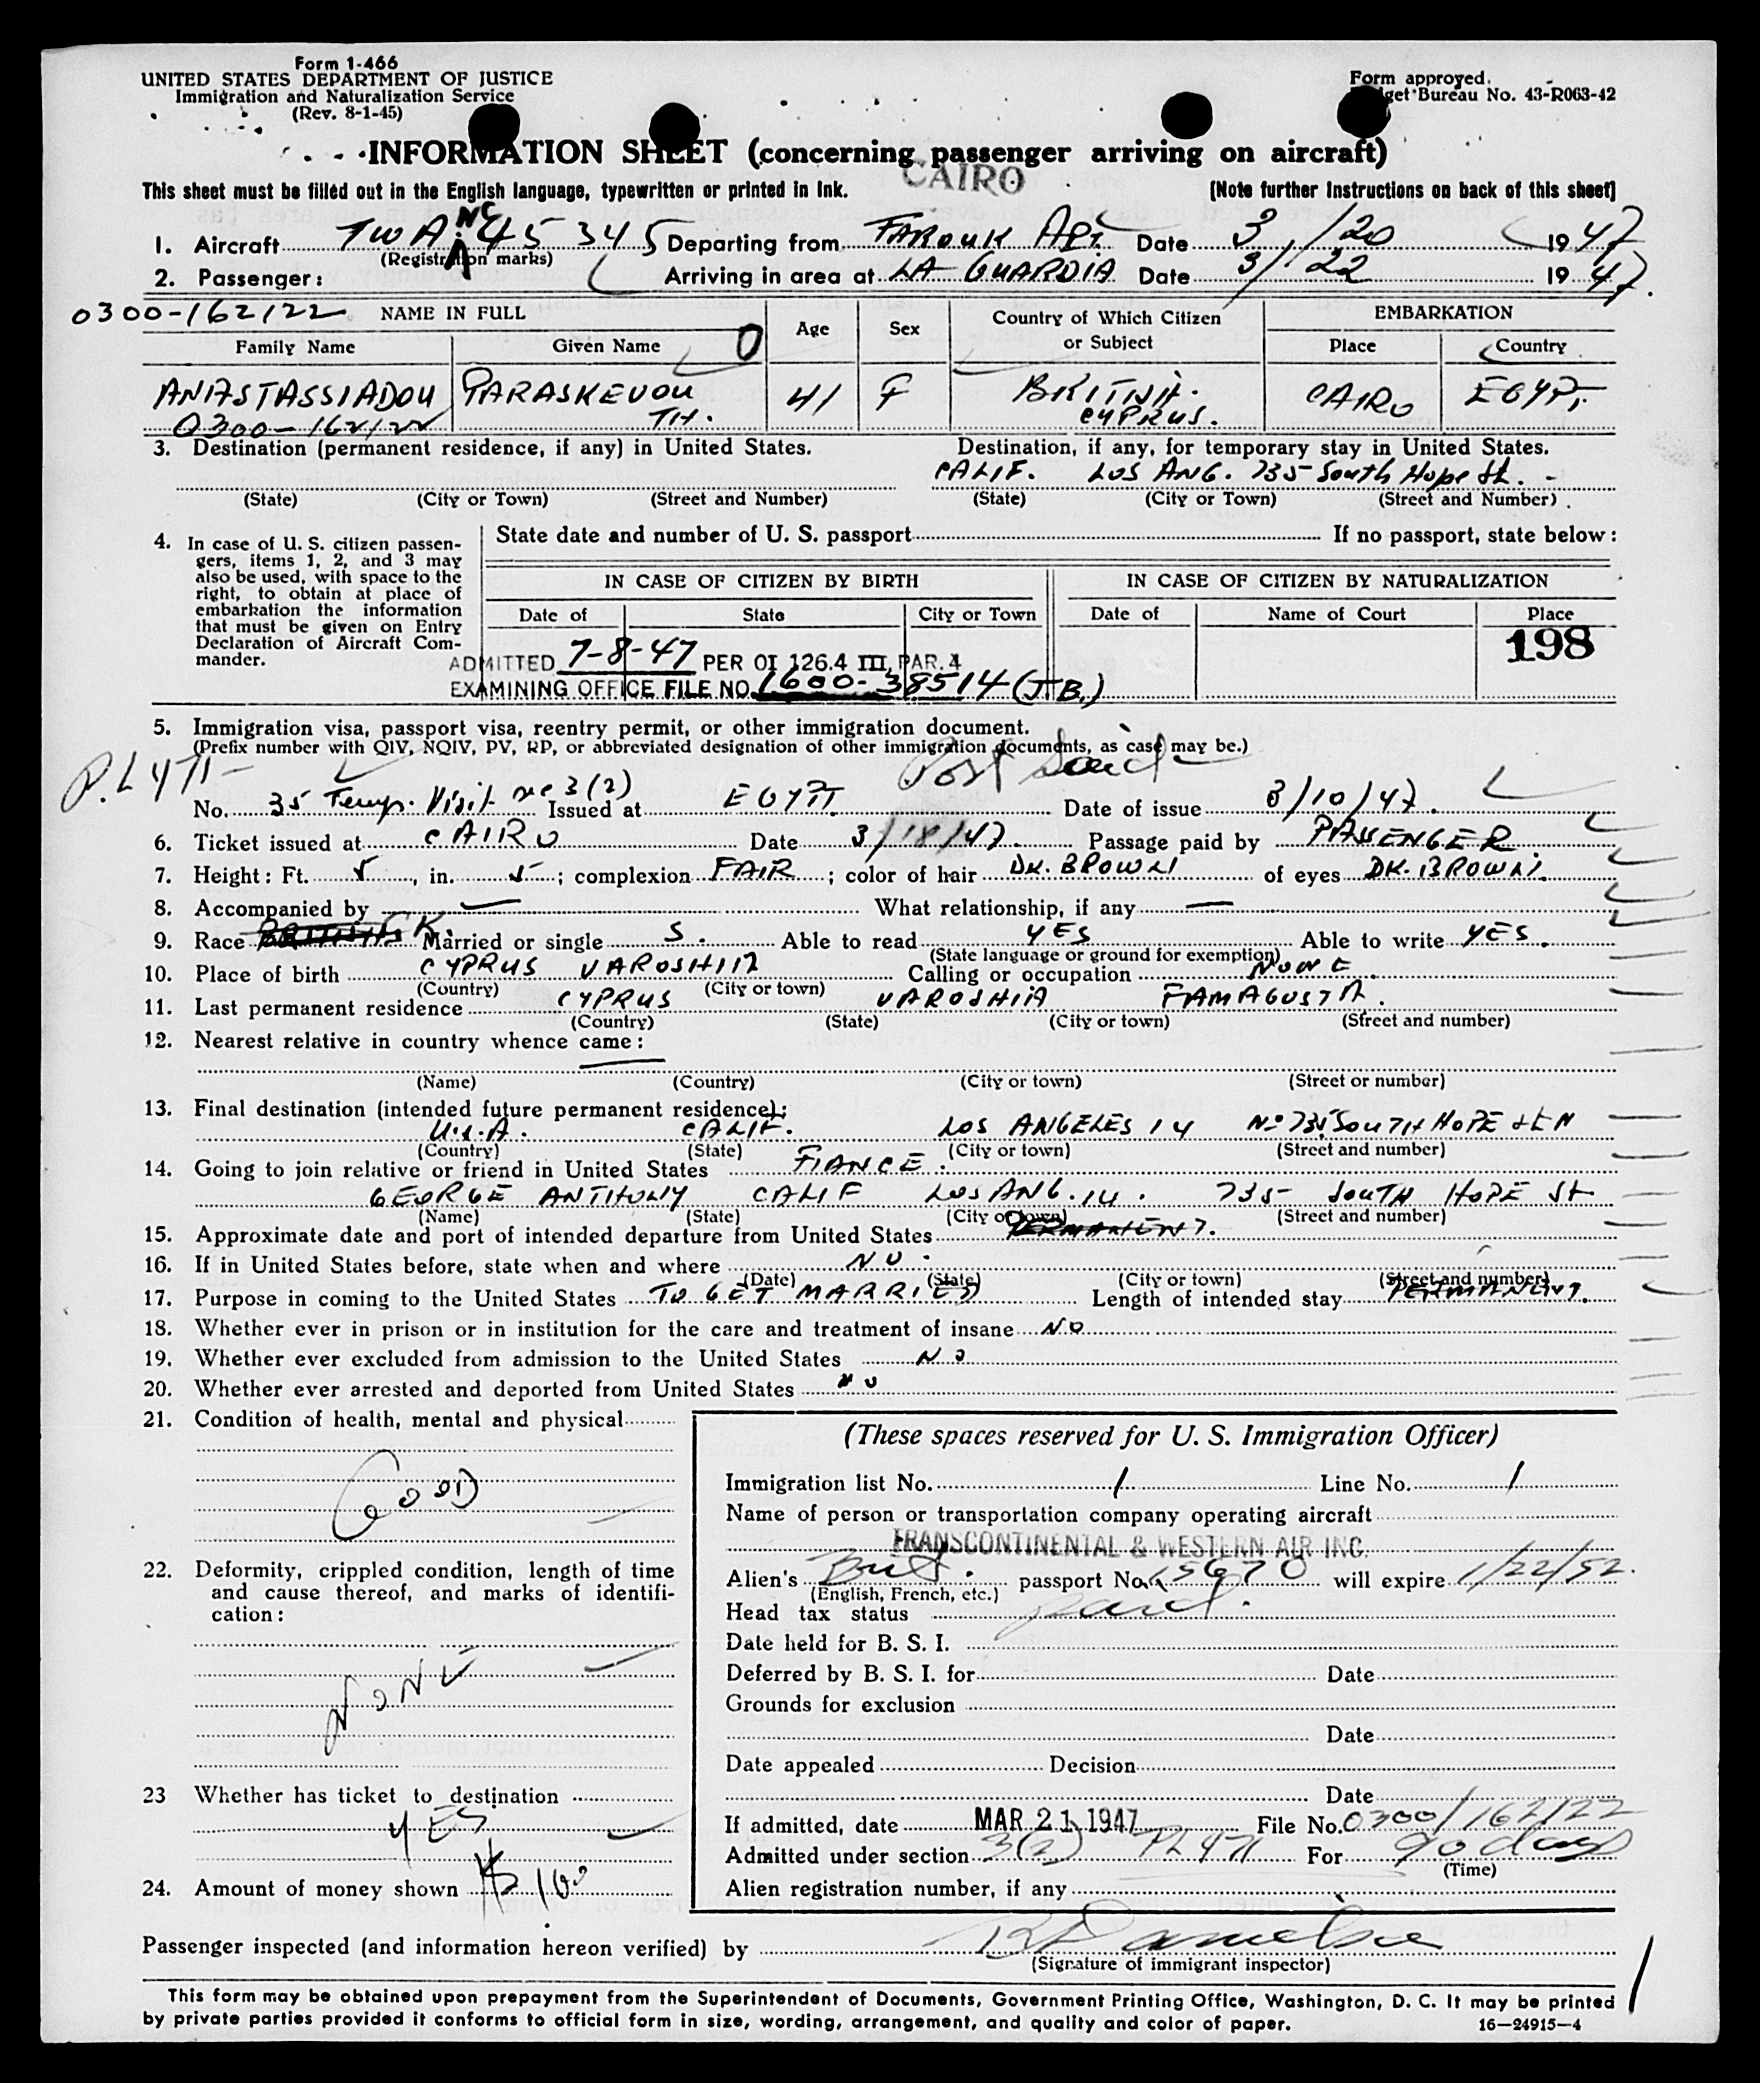 Form 1-466
UNITED STATES DEPARTMENT OF JUSTICE
Immigration and Naturalization Service
(Rev. 8-1-45)
Form approved.
Bureau No. 43-R063-42
INFORMATION SHEET (concerning passenger arriving on aircraft)
CAIRO
This sheet must be filled out in the English language, typewritten or printed in ink. [Note further instructions on back of this sheet]
1. Aircraft TWA NC 45345 Departing from FAROUK APT. Date 3/20 1947
(Registration marks)
2. Passenger: Arriving in area at LA GUARDIA Date 3/22 1947.
0300-162122 NAME IN FULL Age Sex Country of Which Citizen or Subject EMBARKATION
Family Name Given Name O Place Country
ANASTASSIADOU PARASKEVOU TH. 41 F BRITISH. CYPRUS. CAIRO EGYPT.
0300-162122
3. Destination (permanent residence, if any) in United States. Destination, if any, for temporary stay in United States.
CALIF. LOS ANG. 735 South Hope St.
(State) (City or Town) (Street and Number) (State) (City or Town) (Street and Number)
4. In case of U. S. citizen passengers, items 1, 2, and 3 may also be used, with space to the right, to obtain at place of embarkation the information that must be given on Entry Declaration of Aircraft Commander.
State date and number of U. S. passport If no passport, state below:
IN CASE OF CITIZEN BY BIRTH IN CASE OF CITIZEN BY NATURALIZATION
Date of State City or Town Date of Name of Court Place
198
ADMITTED 7-8-47 PER OI 126.4 III, PAR. 4
EXAMINING OFFICE FILE NO. 1600-38514 (J.B.)
5. Immigration visa, passport visa, reentry permit, or other immigration document.
(Prefix number with QIV, NQIV, PV, RP, or abbreviated designation of other immigration documents, as case may be.)
P.L 471 Port Said
No. 35 Temp. Visit sec 3(2) Issued at EGYPT. Date of issue 3/10/47.
6. Ticket issued at CAIRO Date 3/18/47. Passage paid by PASSENGER
7. Height: Ft. 5, in. 5; complexion FAIR; color of hair DK. BROWN of eyes DK. BROWN.
8. Accompanied by — What relationship, if any —
9. Race BRITISH GK. Married or single S. Able to read YES Able to write YES.
(State language or ground for exemption)
10. Place of birth CYPRUS VAROSHIA Calling or occupation NONE.
(Country) (City or town)
11. Last permanent residence CYPRUS VAROSHIA FAMAGUSTA.
(Country) (State) (City or town) (Street and number)
12. Nearest relative in country whence came: —
(Name) (Country) (City or town) (Street or number)
13. Final destination (intended future permanent residence):
U.S.A. CALIF. LOS ANGELES 14 No 735 SOUTH HOPE
(Country) (State) (City or town) (Street and number)
14. Going to join relative or friend in United States FIANCE.
GEORGE ANTHONY CALIF LOS ANG. 14. 735 SOUTH HOPE St
(Name) (State) (City or town) (Street and number)
15. Approximate date and port of intended departure from United States PERMANENT.
16. If in United States before, state when and where NO.
(Date) (State) (City or town) (Street and number)
17. Purpose in coming to the United States TO GET MARRIED Length of intended stay PERMANENT.
18. Whether ever in prison or in institution for the care and treatment of insane NO
19. Whether ever excluded from admission to the United States NO
20. Whether ever arrested and deported from United States NO
21. Condition of health, mental and physical
GOOD
22. Deformity, crippled condition, length of time and cause thereof, and marks of identification:
NONE
23 Whether has ticket to destination
YES
24. Amount of money shown $ 100
(These spaces reserved for U. S. Immigration Officer)
Immigration list No. 1 Line No. 1
Name of person or transportation company operating aircraft
TRANSCONTINENTAL & WESTERN AIR INC.
Alien's Brit. passport No. 15670 will expire 1/22/52.
(English, French, etc.)
Head tax status paid.
Date held for B. S. I.
Deferred by B. S. I. for Date
Grounds for exclusion
Date
Date appealed Decision
Date
If admitted, date MAR 21 1947 File No. 0300/162122
Admitted under section 3(2) PL 471 For 90 days
(Time)
Alien registration number, if any
Passenger inspected (and information hereon verified) by
(Signature of immigrant inspector)
This form may be obtained upon prepayment from the Superintendent of Documents, Government Printing Office, Washington, D. C. It may be printed
by private parties provided it conforms to official form in size, wording, arrangement, and quality and color of paper. 16—24915-4